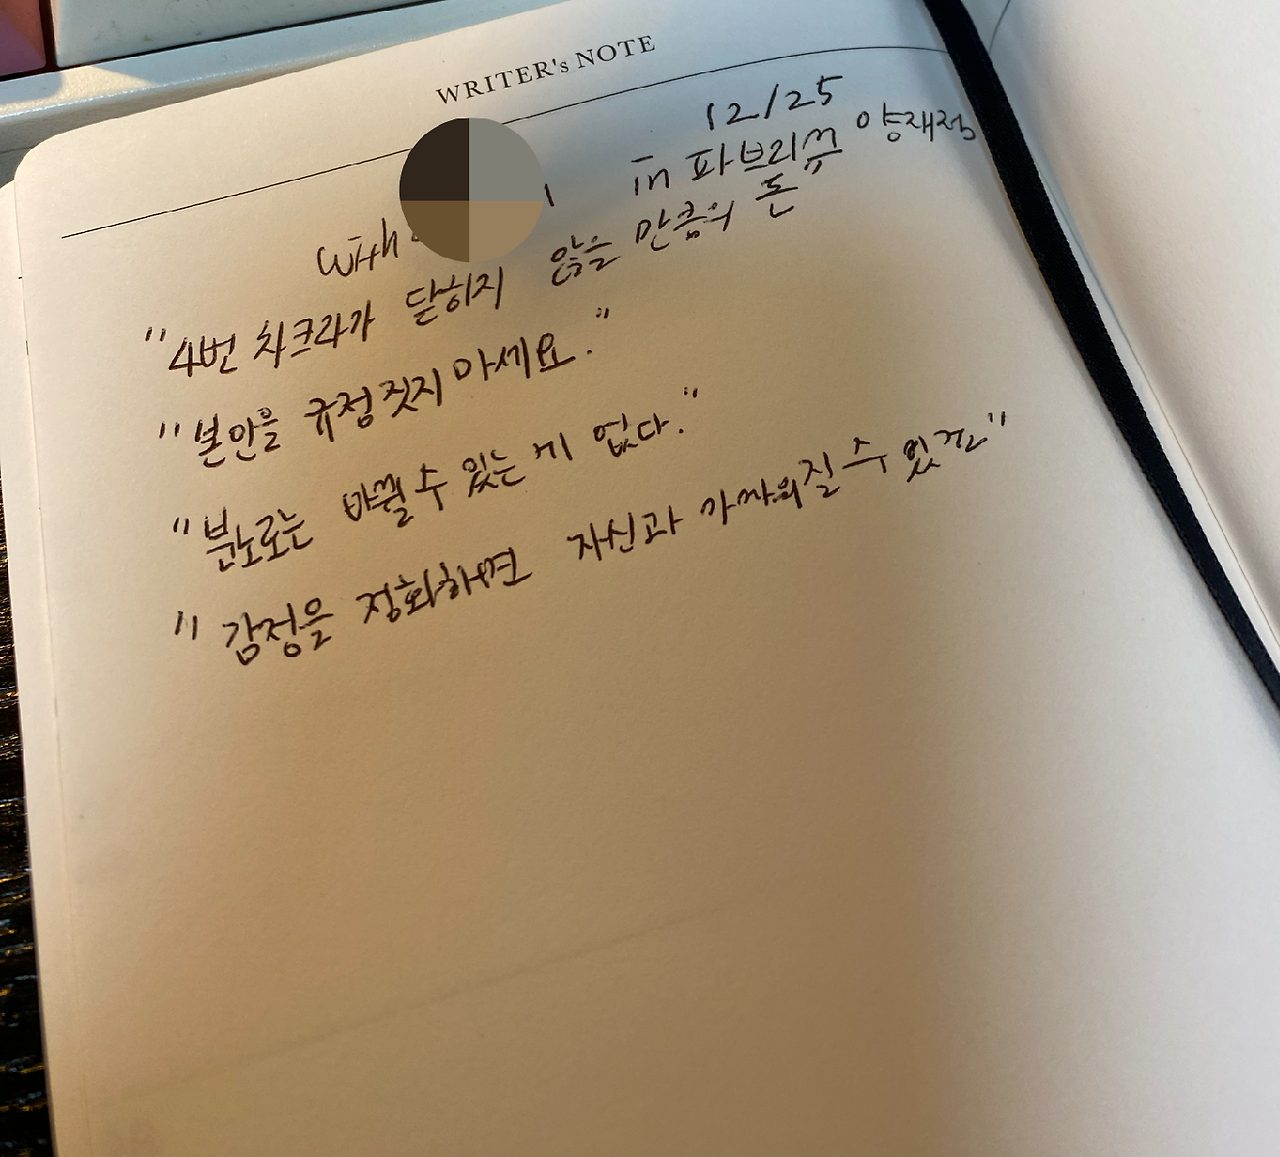 WRITER's NOTE
12/25
with in 파브리끄 양재점
"4번 차크라가 닫히지 않을 만큼의 돈
"본인을 규정짓지 마세요."
"분노로는 바뀔 수 있는 게 없다."
"감정을 정화하면 자신과 가까워질 수 있"